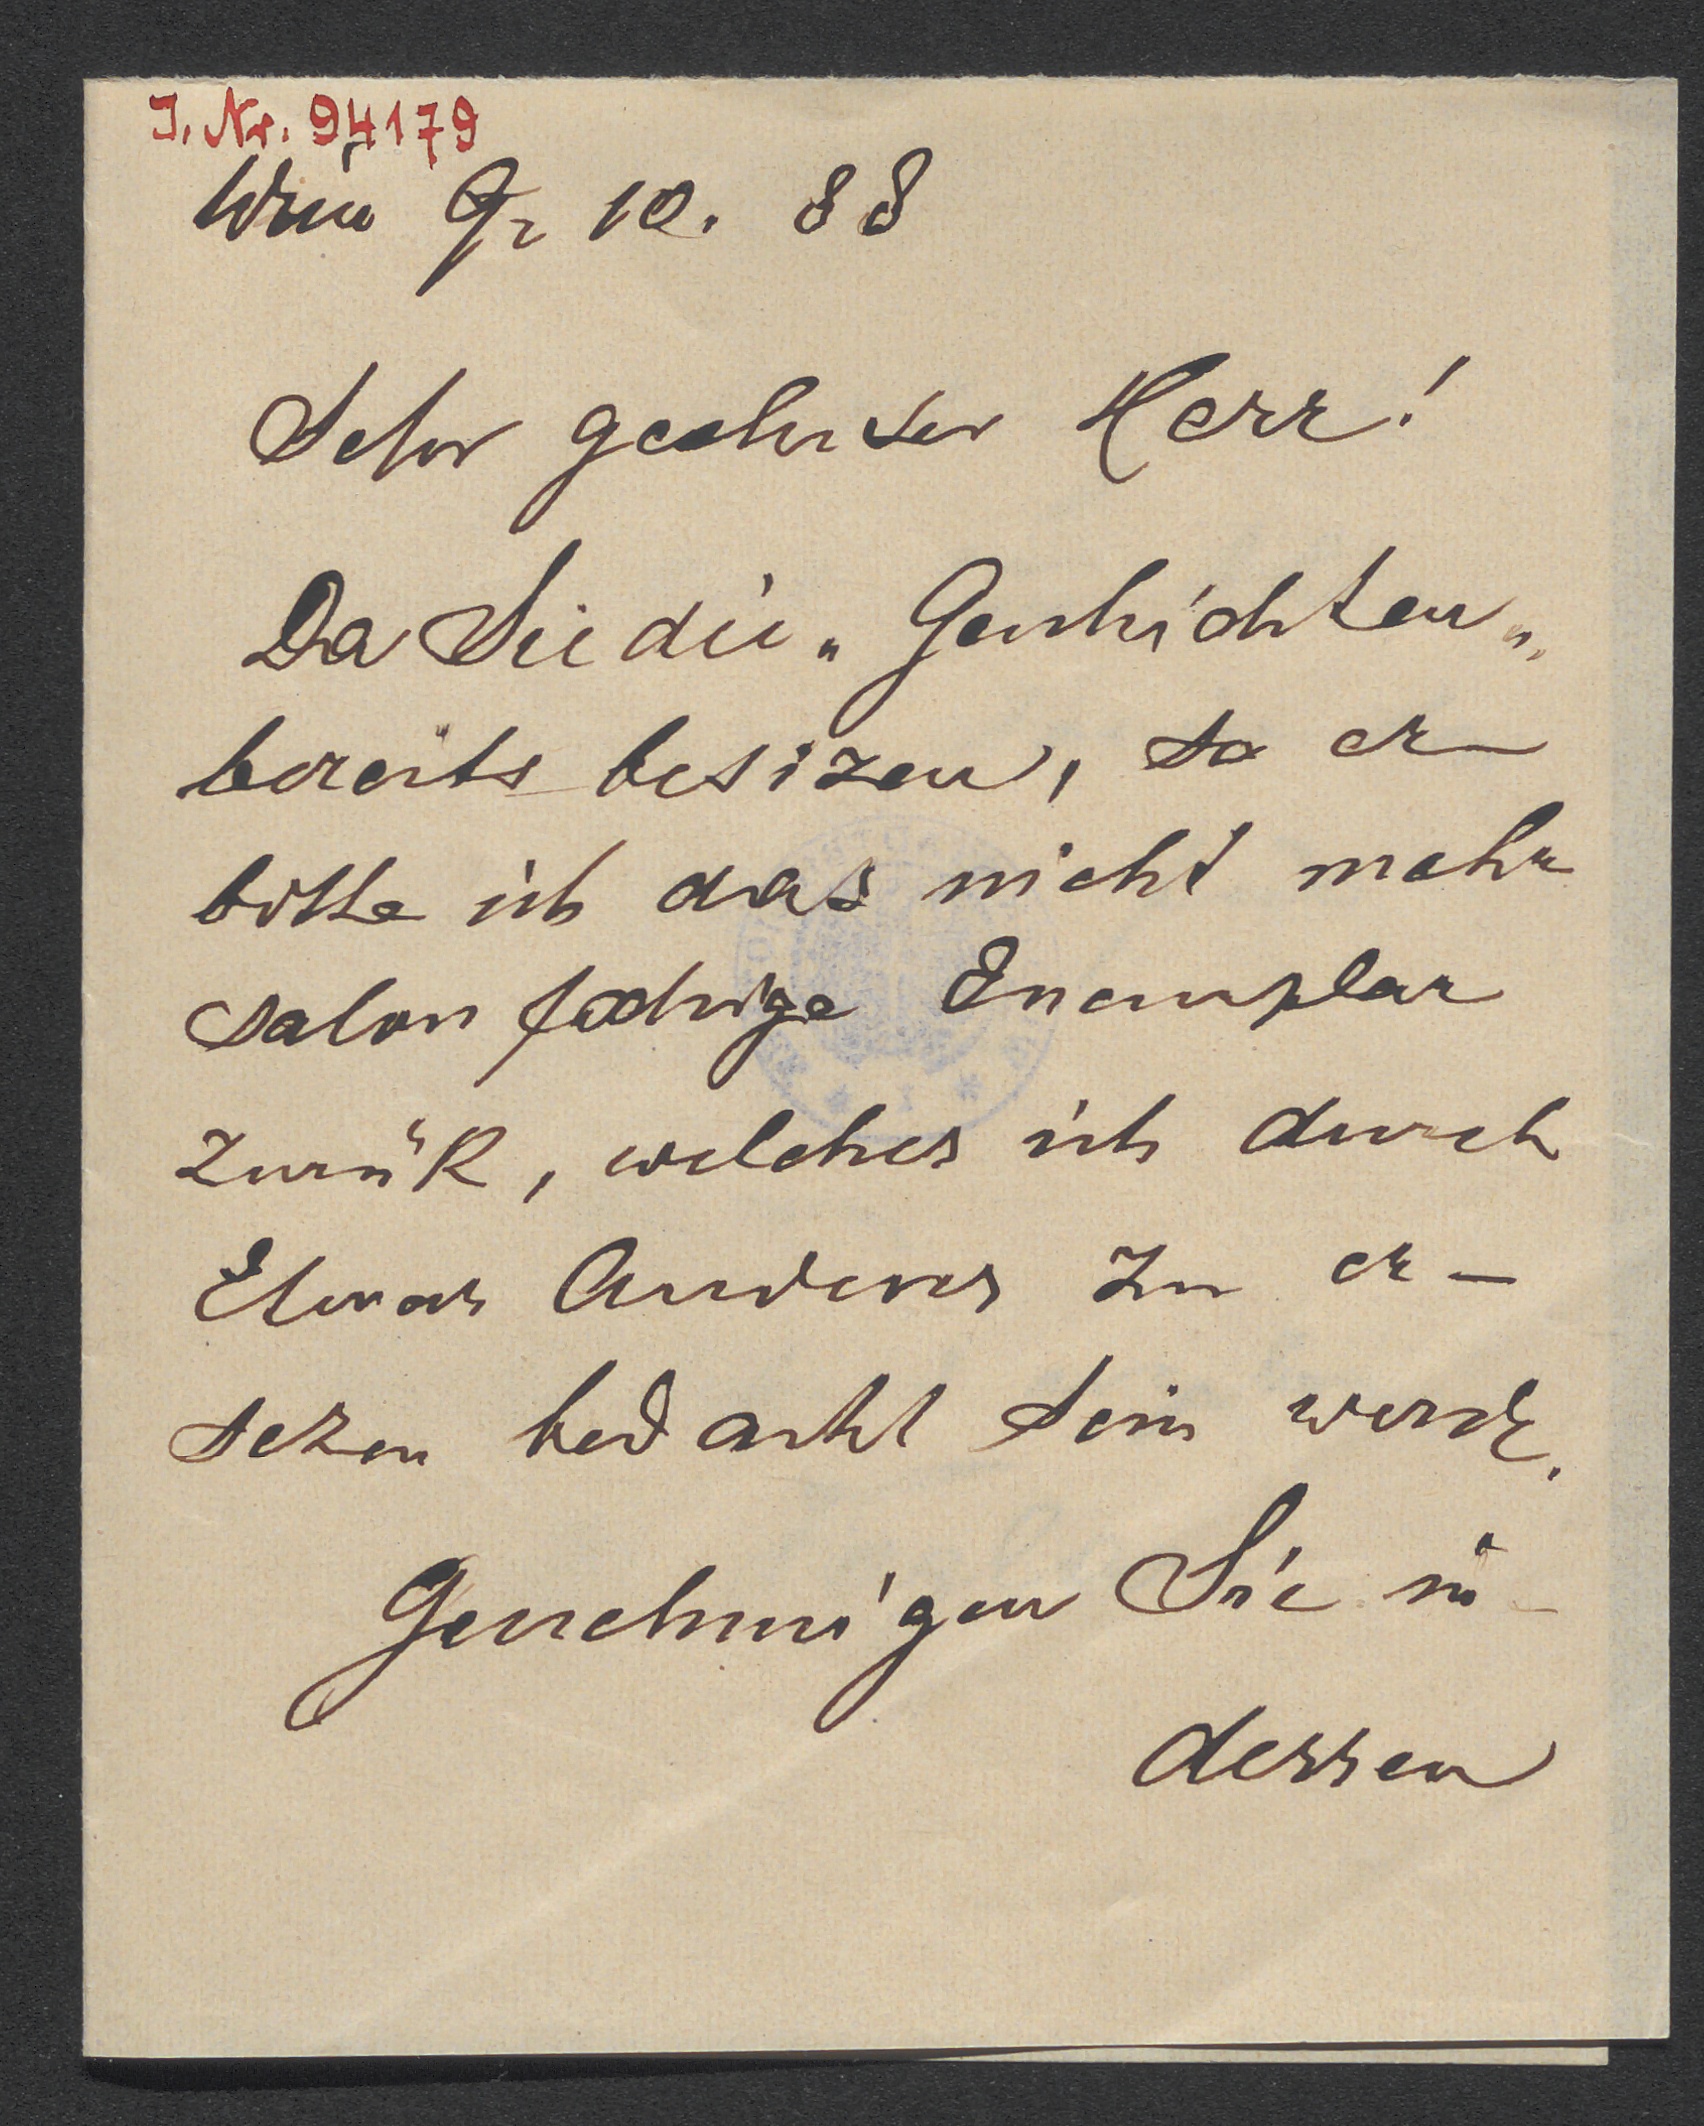 I. Nr. 94179
Wien 9/10. 88
Sehr geehrter Herr!
Da Sie die „Geschichten„
bereits besizen, so er-
bitte ich das nicht mehr
salonfähige Exemplar
zurük, welches ich durch
Etwas Anderes zu er-
sezen bedacht sein werde.
Genehmigen Sie in-
dessen